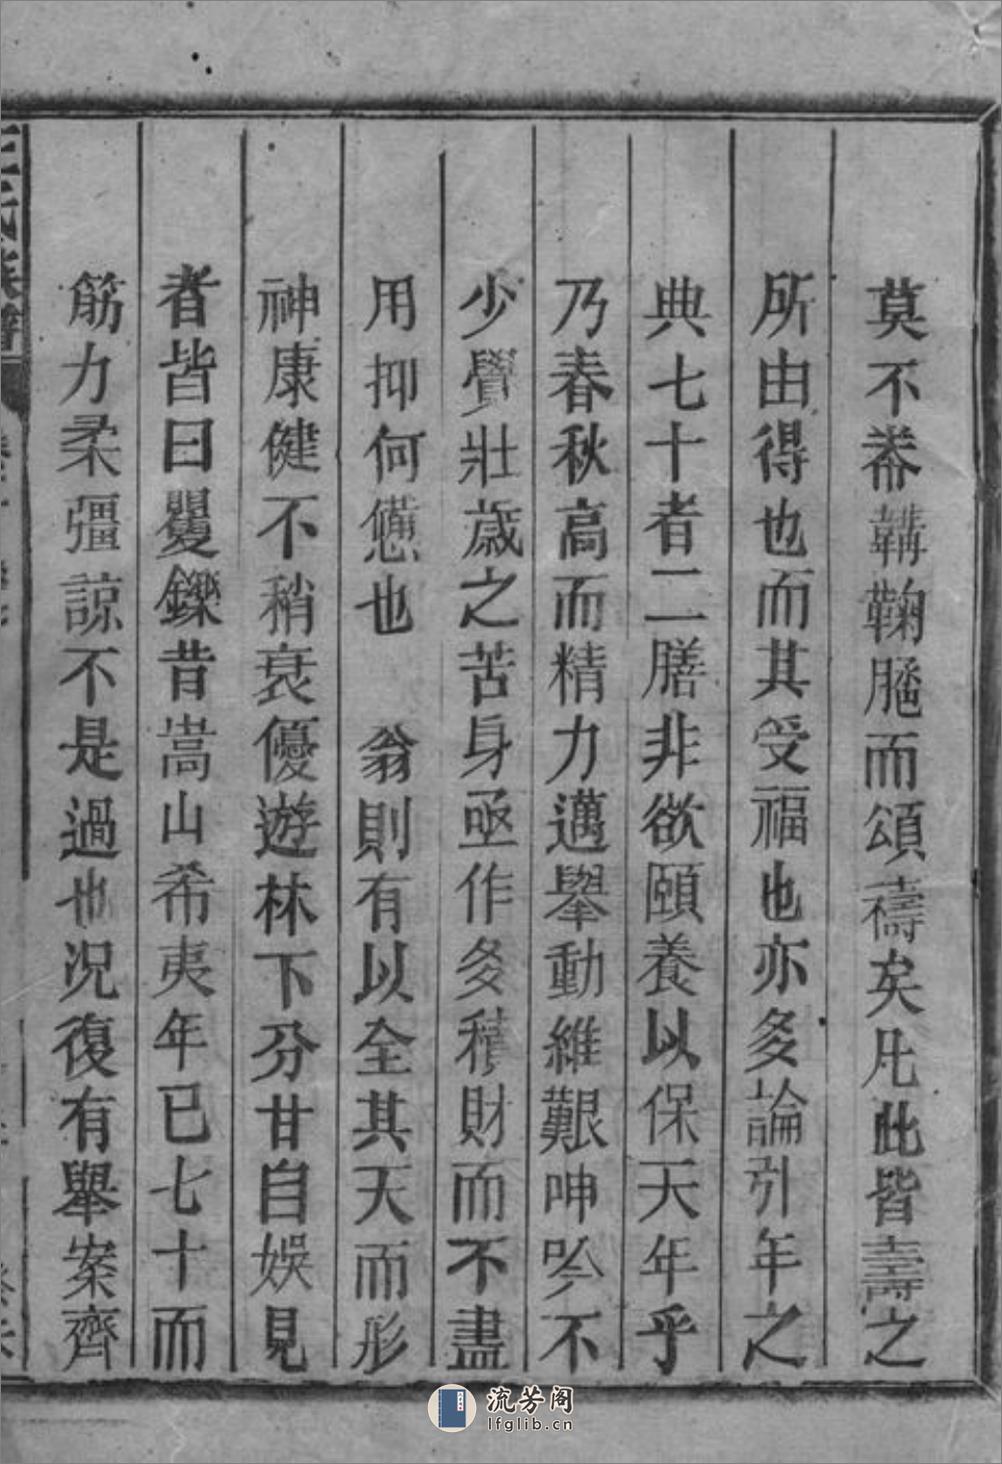 莫不卷韝鞠䠶而頌禱矣凡此皆壽之
所由得也而其受福也亦多論引年之
典七十者二膳非欲頤養以保天年乎
乃春秋高而精力邁舉動維艱呻吟不
少覺壯歲之苦身亟作多積財而不盡
用抑何憊也 翁則有以全其天而形
神康健不稍衰優遊林下分甘自娛見
者皆曰矍鑠昔嵩山希夷年已七十而
筋力柔彊諒不是過也況復有舉案齊
王氏族譜
流芳阁
lfglib.cn